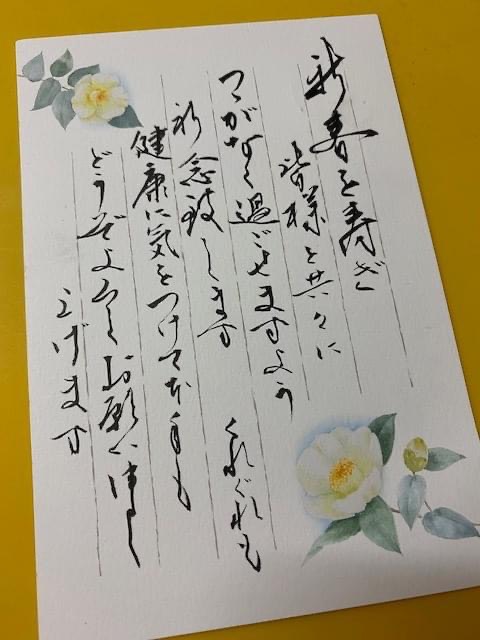 新春を寿ぎ
皆様と共々に
つつがなく過ごせますよう
祈念致します くれぐれも
健康に気をつけて本年も
どうぞよろしくお願い申し
上げます